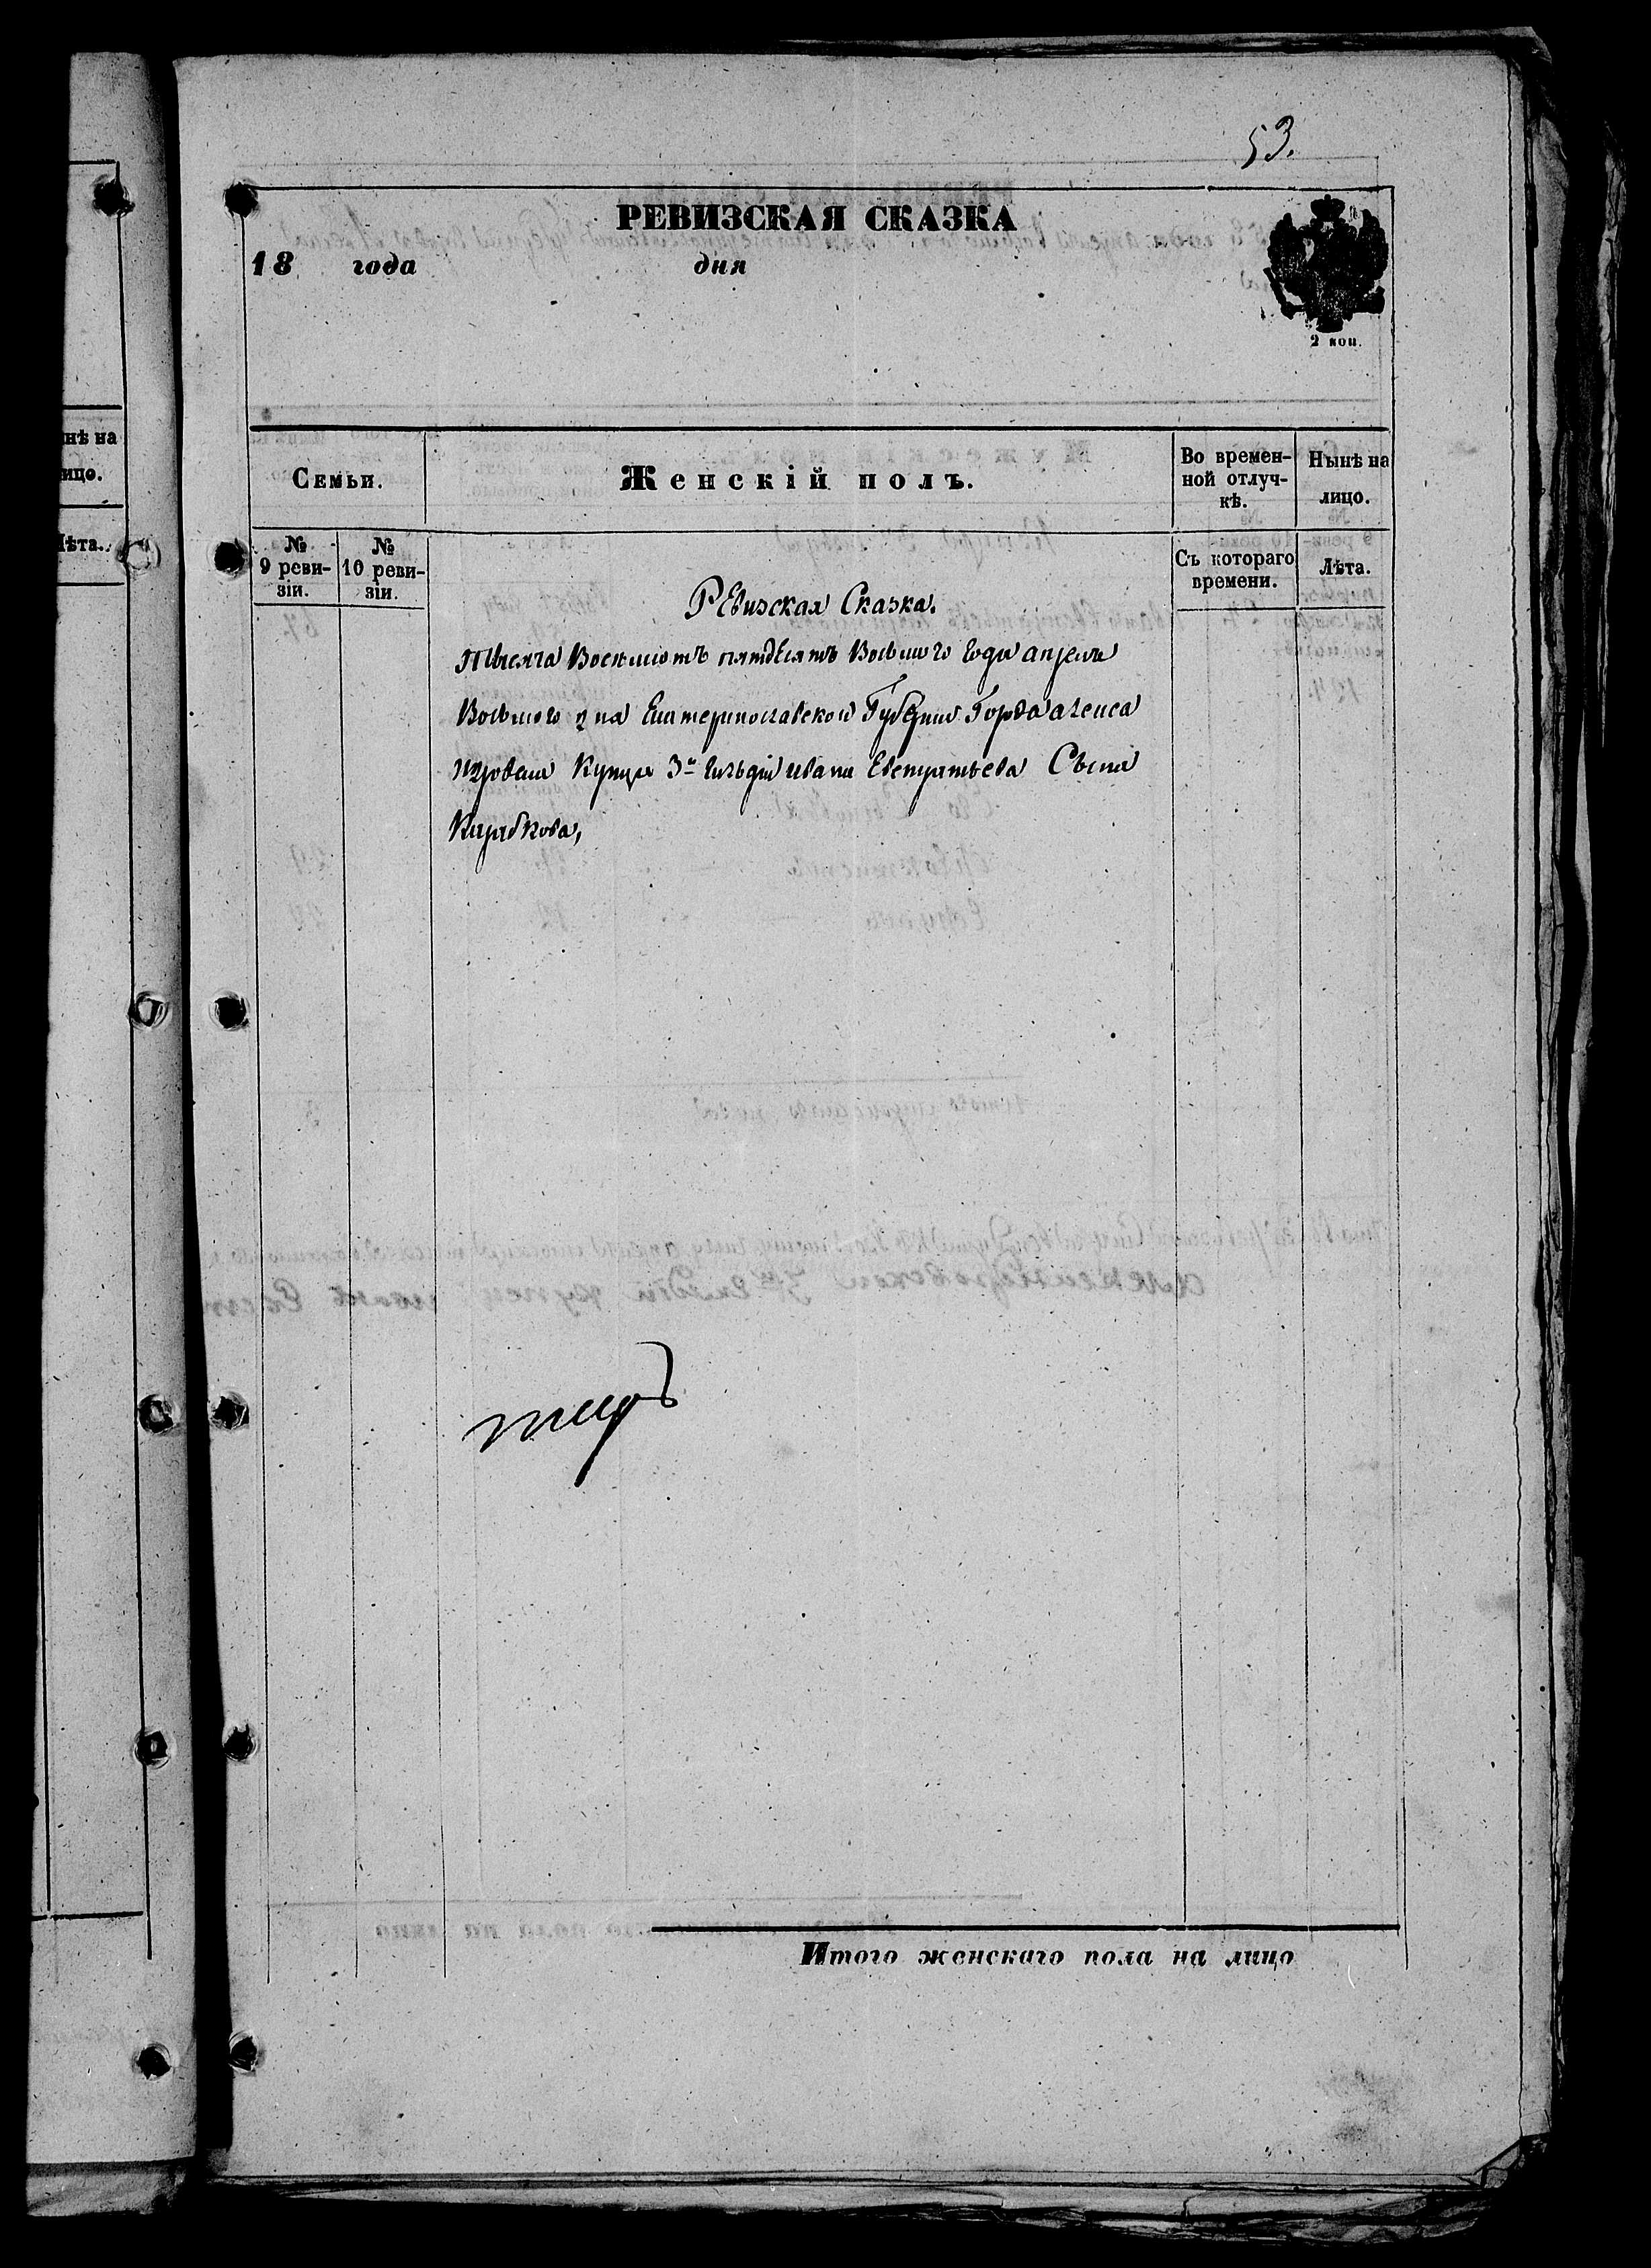 53.
РЕВИЗСКАЯ СКАЗКА
18 года дня
2 коп.
Семьи.
Женскій полъ.
Во времен-
ной отлуч-
кѣ.
Нынѣ на
лицо.
№
9 реви-
зіи.
№
10 реви-
зіи.
Съ котораго
времени.
Лѣта.
Ревизская Сказка.
Тысяча Восемьсотъ пятдесятъ Восьмаго Года апреля
Восьмаго дня Екатеринославской Губернии Города алекса
ндровска Купца 3й Гильдіи ивана Евстратьева Сына
Итого женскаго пола на лицо
нѣ на
ицо.
ѣта.